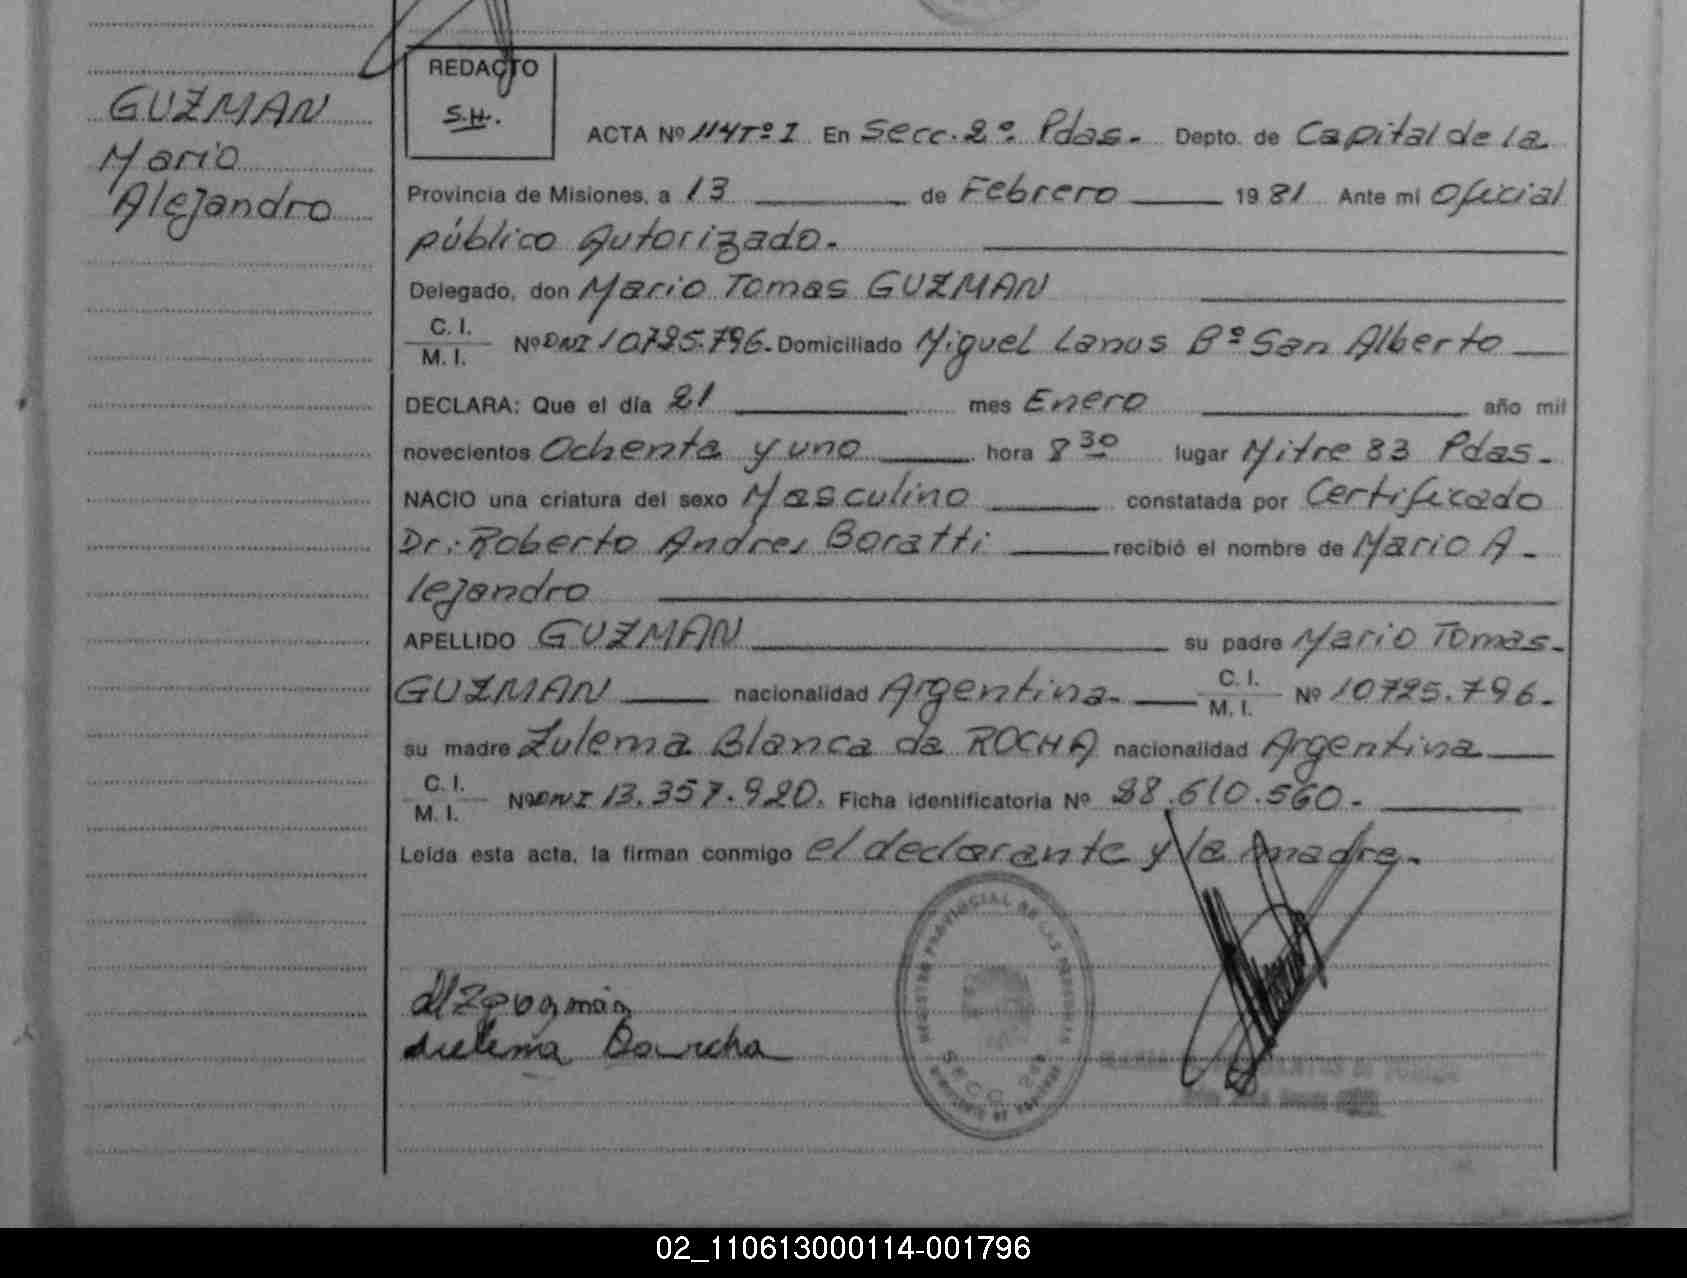 GUZMAN
Mario
Alejandro
REDACTO
S.H.
ACTA Nº 114 Tº I En Secc. 2º Pdas. Depto. de Capital de la
Provincia de Misiones, a 13 de Febrero 1981 Ante mi Oficial
público Autorizado.
Delegado, don Mario Tomas GUZMAN
C. I.
M. I. Nº DNI 10.725.796. Domiciliado Miguel Lanus Bº San Alberto
DECLARA: Que el día 21 mes Enero año mil
novecientos Ochenta y uno hora 8 30 lugar Mitre 83 Pdas.
NACIO una criatura del sexo Masculino constatada por Certificado
Dr. Roberto Andres Boratti recibió el nombre de Mario A-
lejandro
APELLIDO GUZMAN su padre Mario Tomas
GUZMAN nacionalidad Argentina. C. I.
M. I. Nº 10725.796.
su madre Zulema Blanca da ROCHA nacionalidad Argentina
C. I.
M. I. Nº DNI 13.357.920. Ficha identificatoria Nº 28.610.560.
Leída esta acta, la firman conmigo el declarante y la madre.
REGISTRO PROVINCIAL DE LAS PERSONAS
SECC 2da
02_110613000114-001796